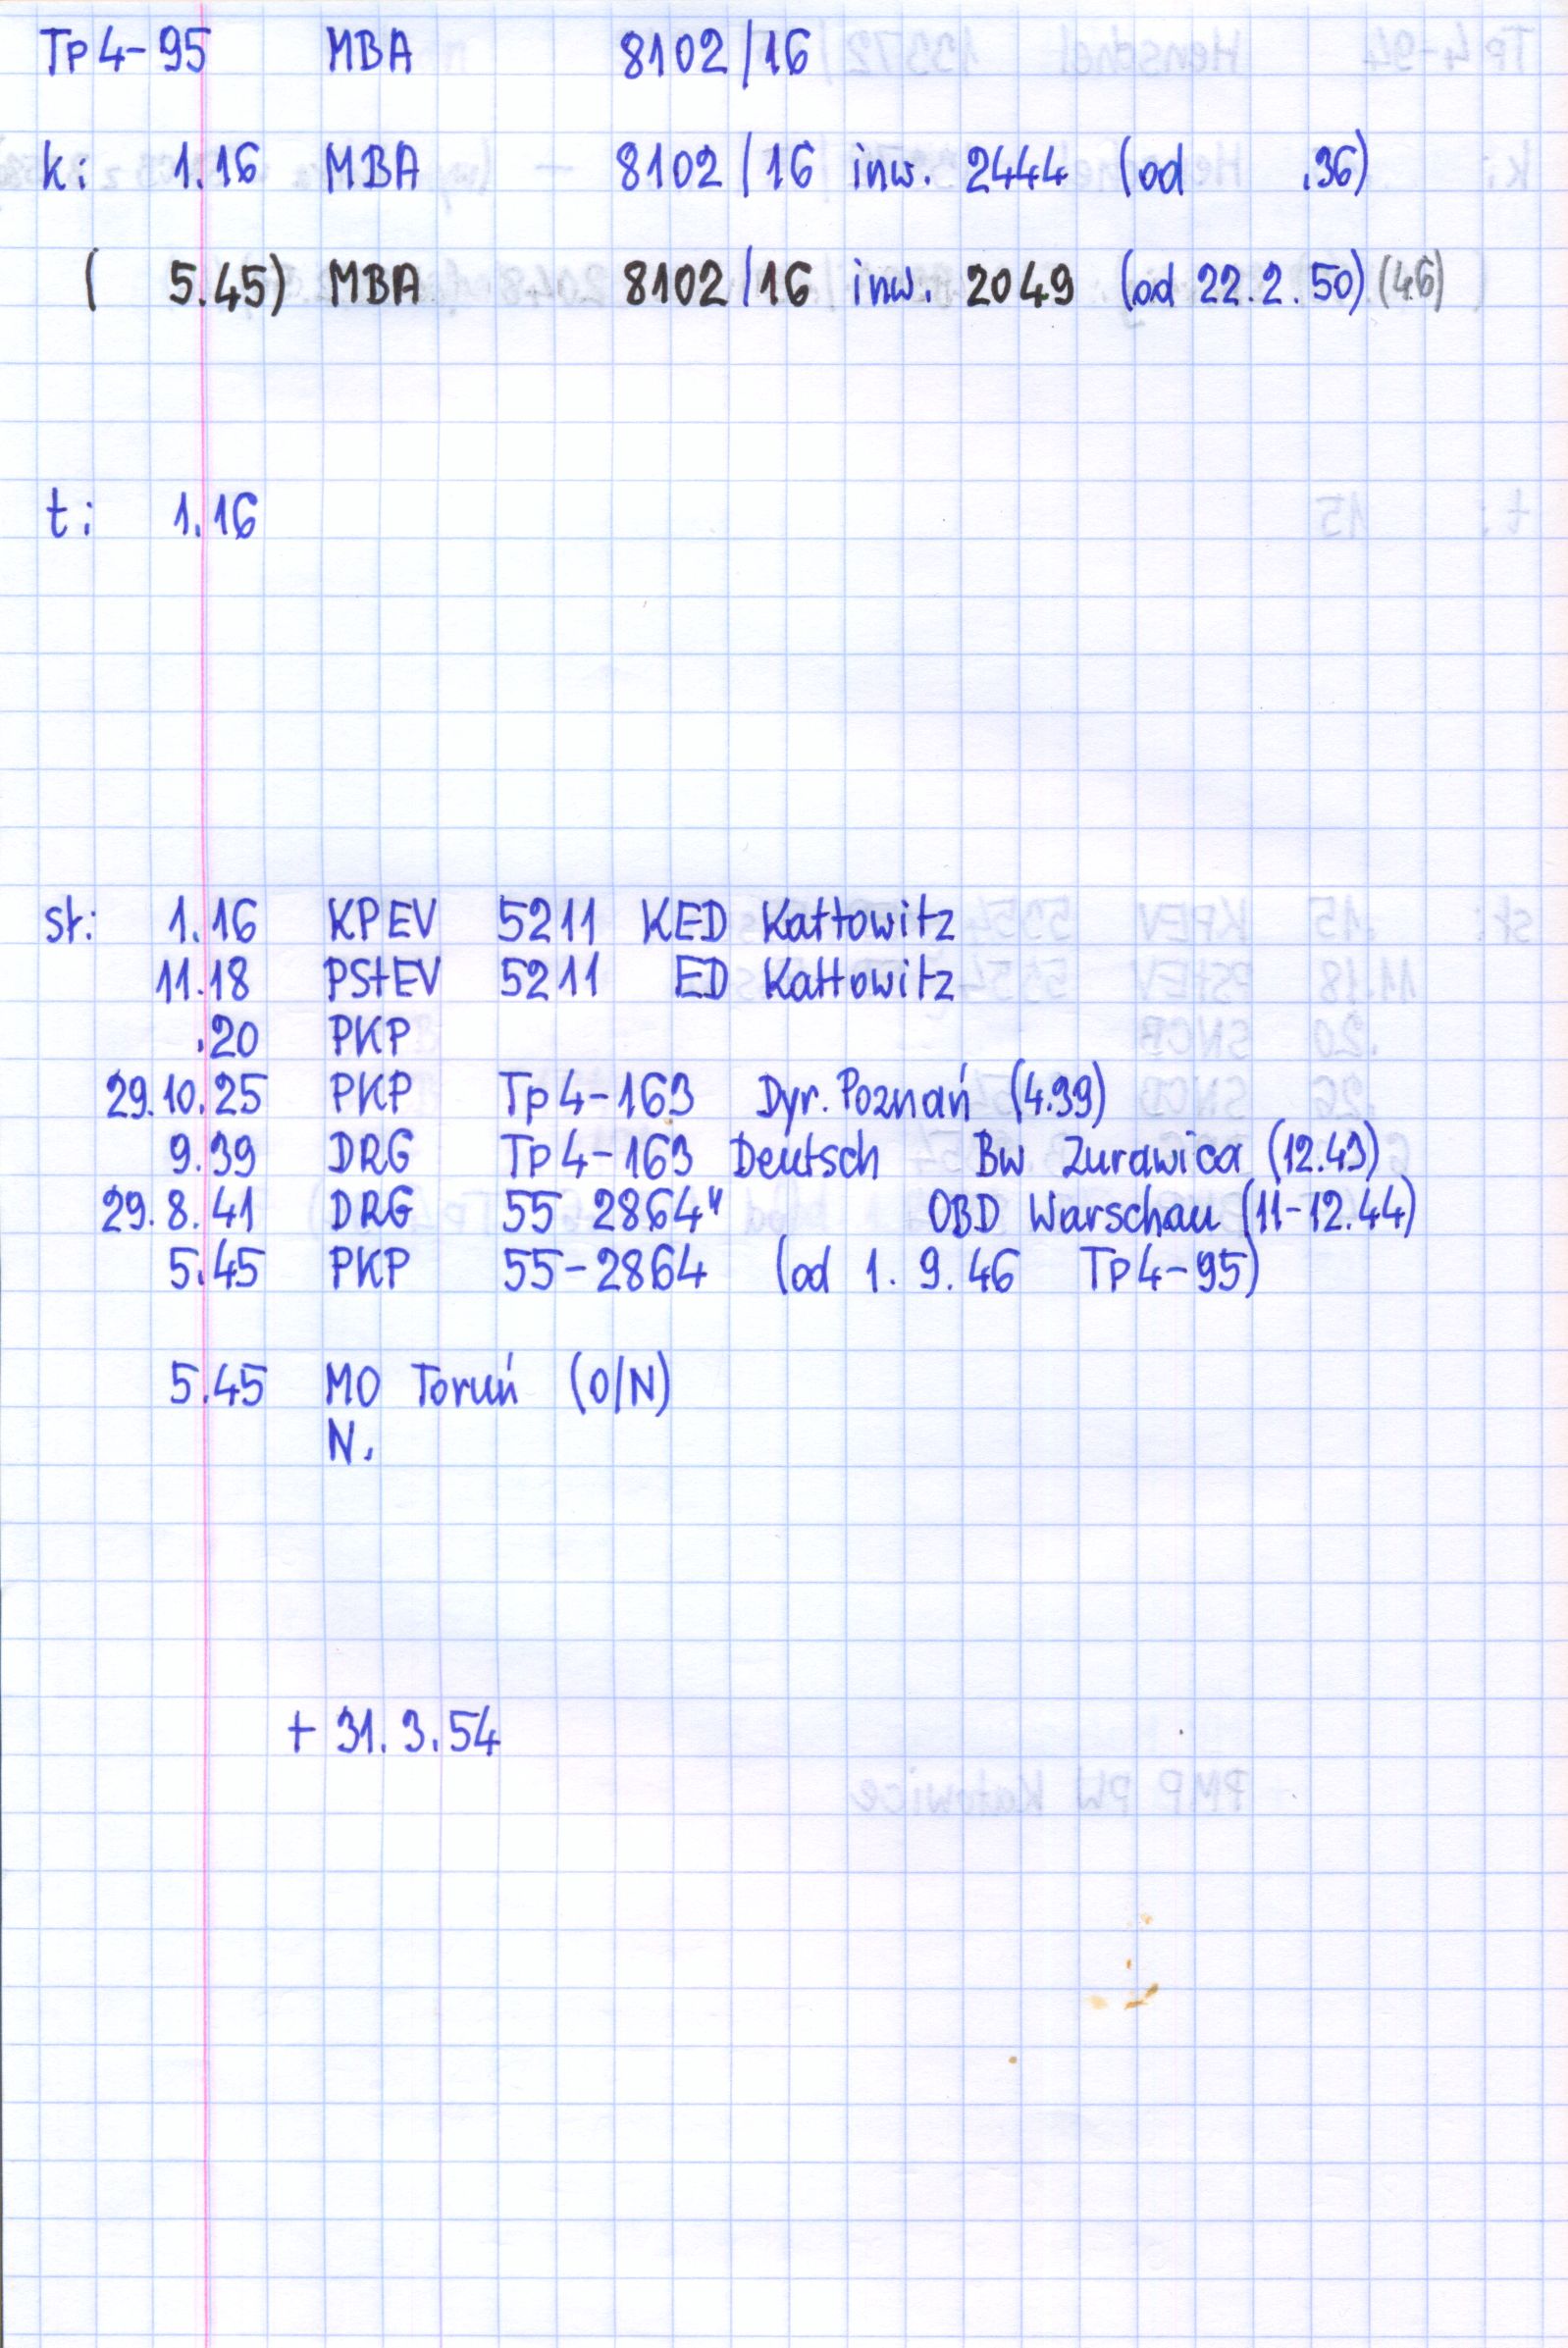 Tp4-95 MBA 8102/16
k: 1.16 MBA 8102/16 inw. 2444 (od .36)
( 5.45) MBA 8102/16 inw. 2049 (od 22.2.50) (46)
t: 1.16
st: 1.16 KPEV 5211 KED Kattowitz
11.18 PStEV 5211 ED Kattowitz
.20 PKP
29.10.25 PKP Tp4-163 Dyr. Poznań (4.39)
9.39 DRG Tp4-163 Deutsch Bw Zurawica (12.43)
29.8.41 DRG 55 2864" OBD Warschau (11-12.44)
5.45 PKP 55-2864 (od 1.9.46 Tp4-95)
5.45 MO Toruń (O/N)
N.
+ 31.3.54